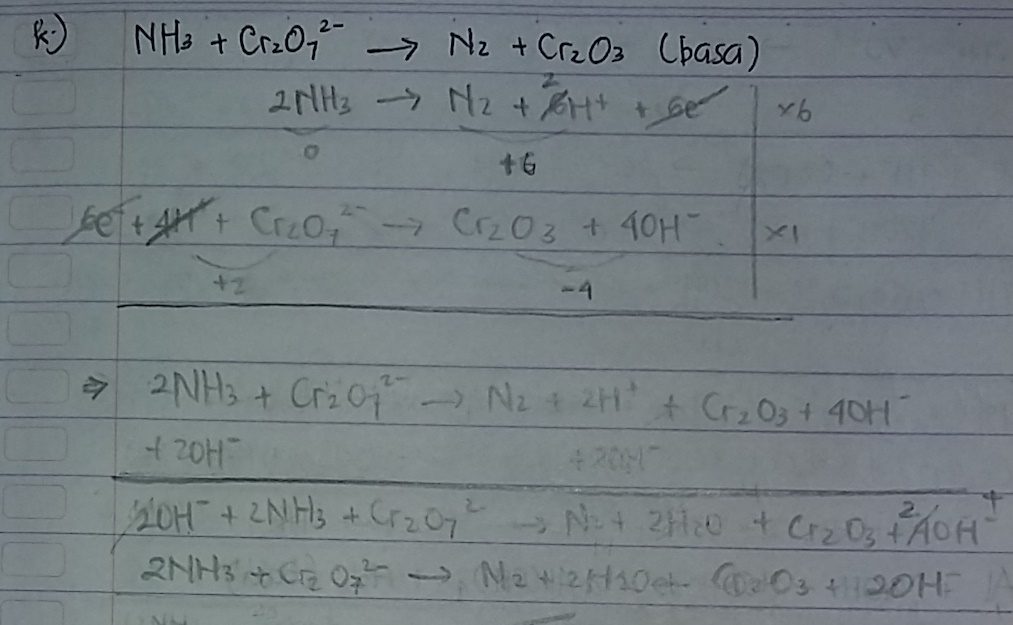 k.) NH₃ + Cr₂O₇²⁻ → N₂ + Cr₂O₃ (basa)
2NH₃ → N₂ + 2 6H⁺ + 6e | ×6
0 +6
6e + 4H⁺ + Cr₂O₇²⁻ → Cr₂O₃ + 4OH⁻ | ×1
+2 -4
⇒ 2NH₃ + Cr₂O₇²⁻ → N₂ + 2H⁺ + Cr₂O₃ + 4OH⁻
+ 2OH⁻ + 2OH⁻
+
2OH⁻ + 2NH₃ + Cr₂O₇²⁻ → N₂ + 2H₂O + Cr₂O₃ + 2 4OH⁻
2NH₃ + Cr₂O₇²⁻ → N₂ + 2H₂O + Cr₂O₃ + 2OH⁻